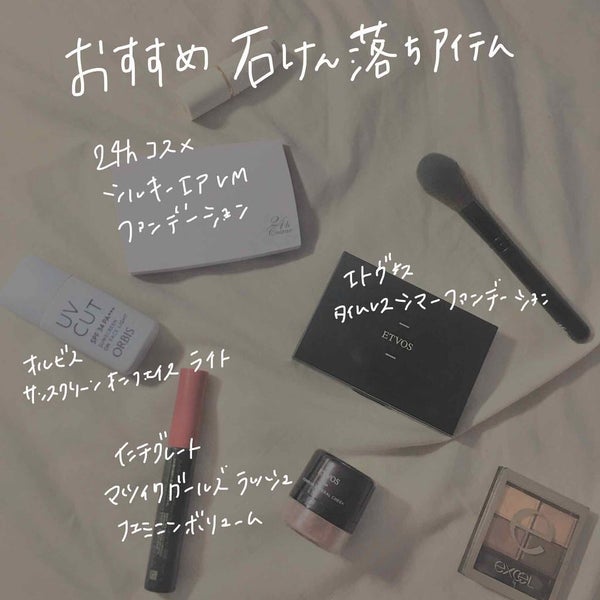 おすすめ 石けん落ちアイテム
24h コスメ
シルキーエアVM
ファンデーション
24h
Cosme
エトヴォス
タイムレスシマーファンデーション
ETVOS
UV
CUT
SPF 34 PA+++
SUNSCREEN
ON FACE LIGHT
ORBIS
オルビス
サンスクリーン オンフェイス ライト
インテグレート
マツイクガールズ ラッシュ
フェミニンボリューム
ETVOS
excel